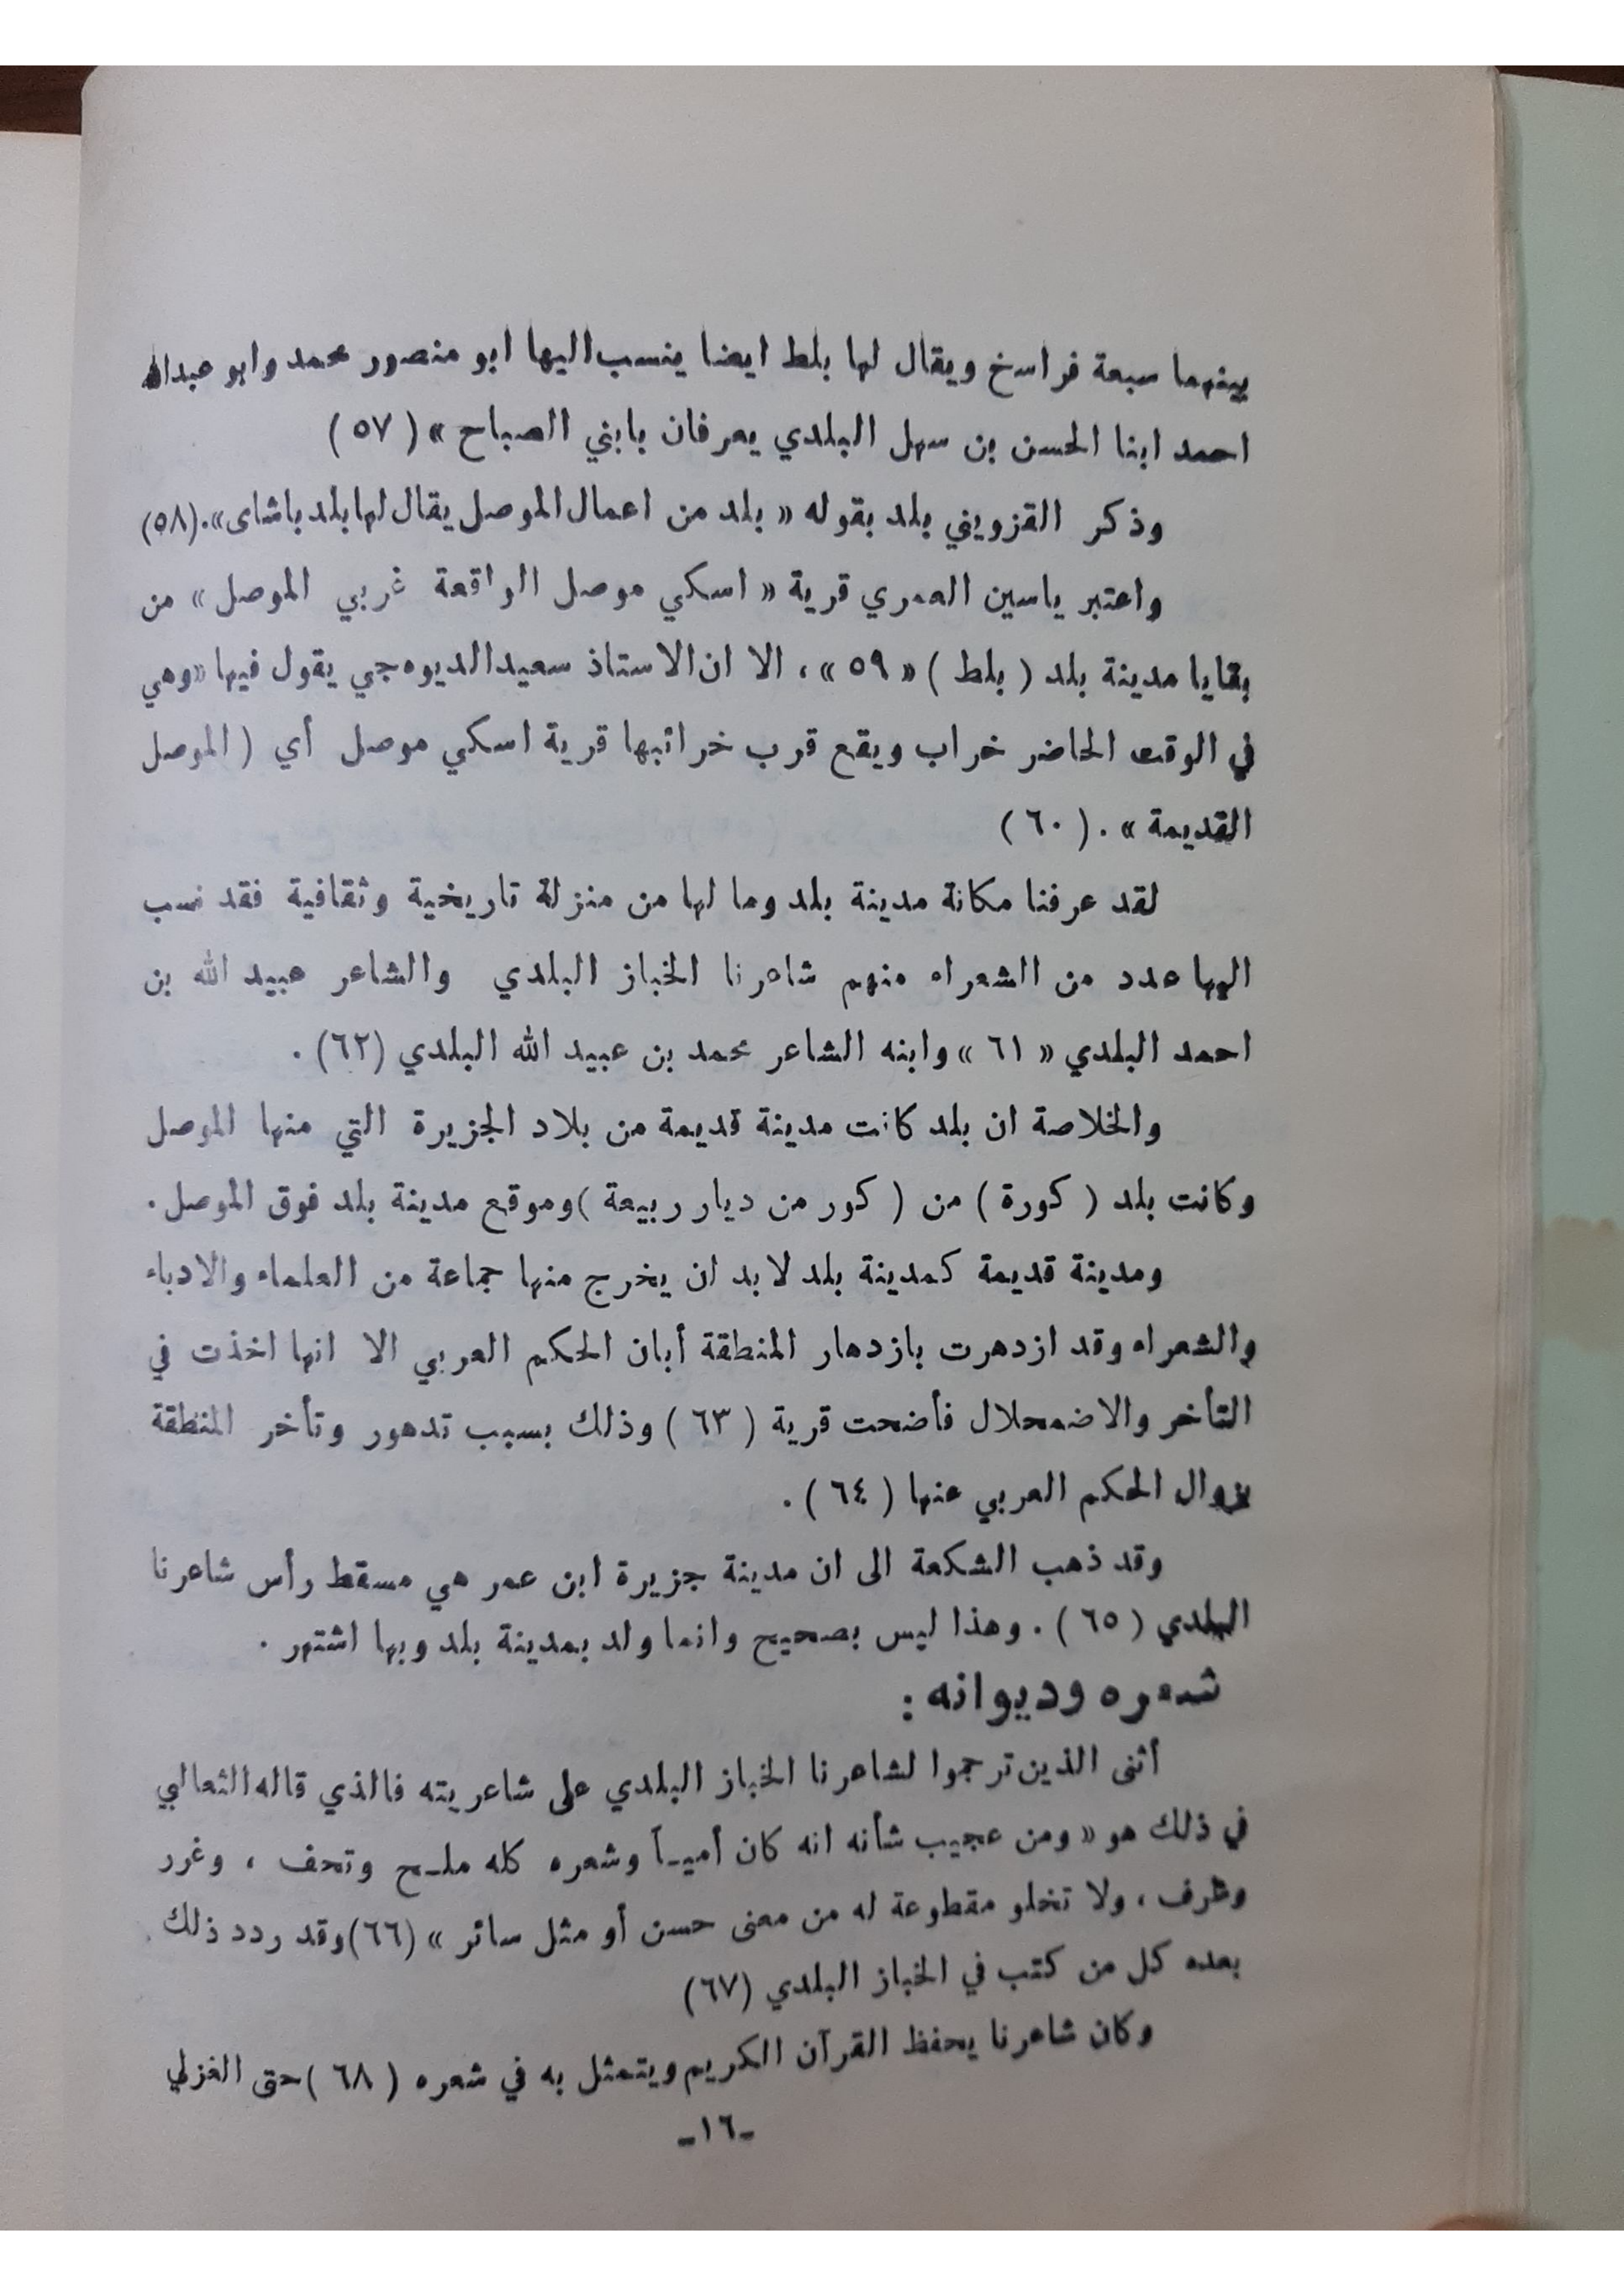 بينهما سبعة فراسخ ويقال لها بلط ايضا ينسب اليها ابو منصور محمد وابو عبدالله
احمد ابنا الحسن بن سهل البلدي يعرفان بابني الصباح » ( ٥٧ )
وذكر القزويني بلد بقوله « بلد من اعمال الموصل يقال لها بلد باشاى» . (٥٨)
واعتبر ياسين العمري قرية « اسكي موصل الواقعة غربي الموصل » من
بقايا مدينة بلد ( بلط ) « ٥٩ » ، الا ان الاستاذ سعيد الديوه جي يقول فيها «وهي
في الوقت الحاضر خراب ويقع قرب خرائبها قرية اسكي موصل أي ( الموصل
القديمة » . ( ٦٠ )
لقد عرفنا مكانة مدينة بلد وما لها من منزلة تاريخية وثقافية فقد نسب
اليها عدد من الشعراء منهم شاعرنا الخباز البلدي والشاعر عبيد الله بن
احمد البلدي « ٦١ » وابنه الشاعر محمد بن عبيد الله البلدي (٦٢) .
والخلاصة ان بلد كانت مدينة قديمة من بلاد الجزيرة التي منها الموصل
وكانت بلد ( كورة ) من ( كور من ديار ربيعة ) وموقع مدينة بلد فوق الموصل .
ومدينة قديمة كمدينة بلد لا بد ان يخرج منها جماعة من العلماء والادباء
والشعراء وقد ازدهرت بازدهار المنطقة أبان الحكم العربي الا انها اخذت في
التأخر والاضمحلال فأضحت قرية ( ٦٣ ) وذلك بسبب تدهور وتأخر المنطقة
بزوال الحكم العربي عنها ( ٦٤ ) .
وقد ذهب الشكعة الى ان مدينة جزيرة ابن عمر هي مسقط رأس شاعرنا
البلدي ( ٦٥ ) . وهذا ليس بصحيح وانما ولد بمدينة بلد وبها اشتهر .
شعره وديوانه :
أثنى الذين ترجموا لشاعرنا الخباز البلدي على شاعريته فالذي قاله الثعالبي
في ذلك هو « ومن عجيب شأنه انه كان أميـاً وشعره كله ملـح وتحف ، وغرر
وطرف ، ولا تخلو مقطوعة له من معنى حسن أو مثل سائر » (٦٦) وقد ردد ذلك
بعده كل من كتب في الخباز البلدي (٦٧)
وكان شاعرنا يحفظ القرآن الكريم ويتمثل به في شعره ( ٦٨ ) حتى الغزلي
-١٦-